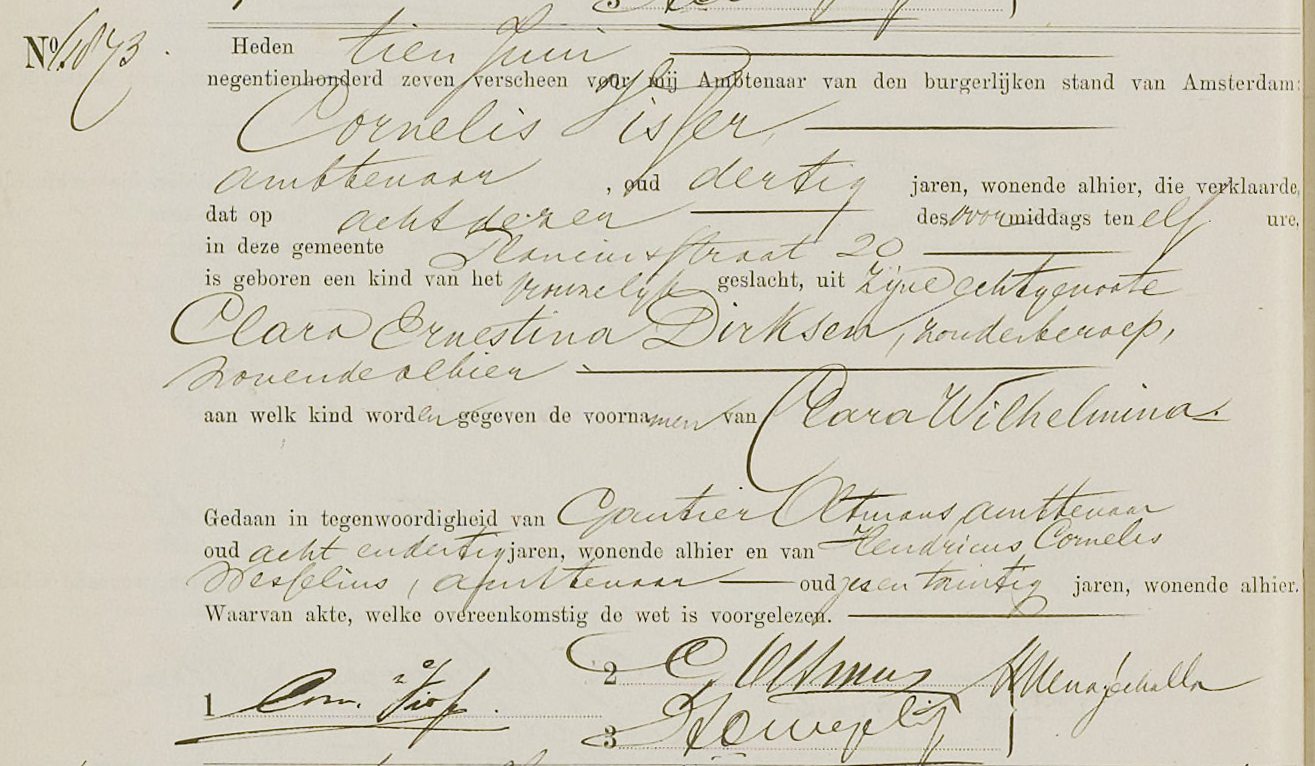 Heden tien Juni
negentienhonderd zeven verscheen voor mij Ambtenaar van den burgerlijken stand van Amsterdam:
Cornelis Visser,
ambtenaar, oud dertig jaren, wonende alhier, die verklaarde,
dat op acht dezer des voormiddags ten elf ure,
in deze gemeente Planciusstraat 20
is geboren een kind van het vrouwelijk geslacht, uit zijne echtgenoote
Clara Ernestina Dirksen, zonder beroep,
wonende alhier
aan welk kind worden gegeven de voornamen van Clara Wilhelmina.
Gedaan in tegenwoordigheid van Gautier Oltmans ambtenaar
oud acht en dertig jaren, wonende alhier en van Hendricus Cornelis
Wesselius, ambtenaar oud zes en twintig jaren, wonende alhier.
Waarvan akte, welke overeenkomstig de wet is voorgelezen.
2 G. Oltmans
1 Corn. Visser.
3